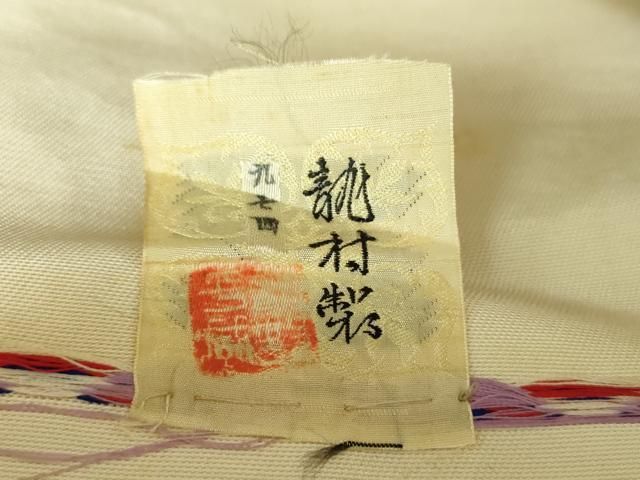 龍村製
九七四